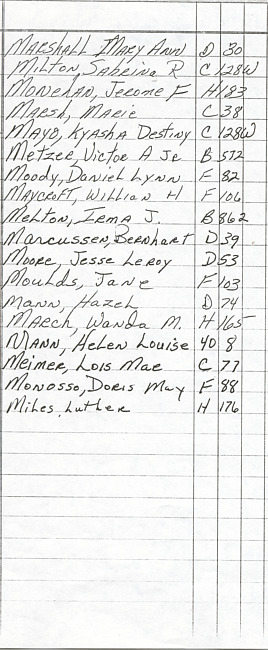 Marshall Mary Ann D 30
Milton, Sabrina R C 128W
Monehan, Jerome F H 183
Marsh, Marie C 38
Mayo, Kyasha Destiny C 128W
Metzer, Victor A Jr B 572
Moody, Daniel Lynn F 82
Maycroft, William H F 106
Melton, Irma J. B 862
Marcussen, Bernhart D 39
Moore, Jesse Leroy D 53
Moulds, Jane F 103
Mann, Hazel D 74
March, Wanda M. H 165
Mann, Helen Louise 40 8
Meimer, Lois Mae C 77
Monosso, Doris May F 88
Miles, Luther H 176